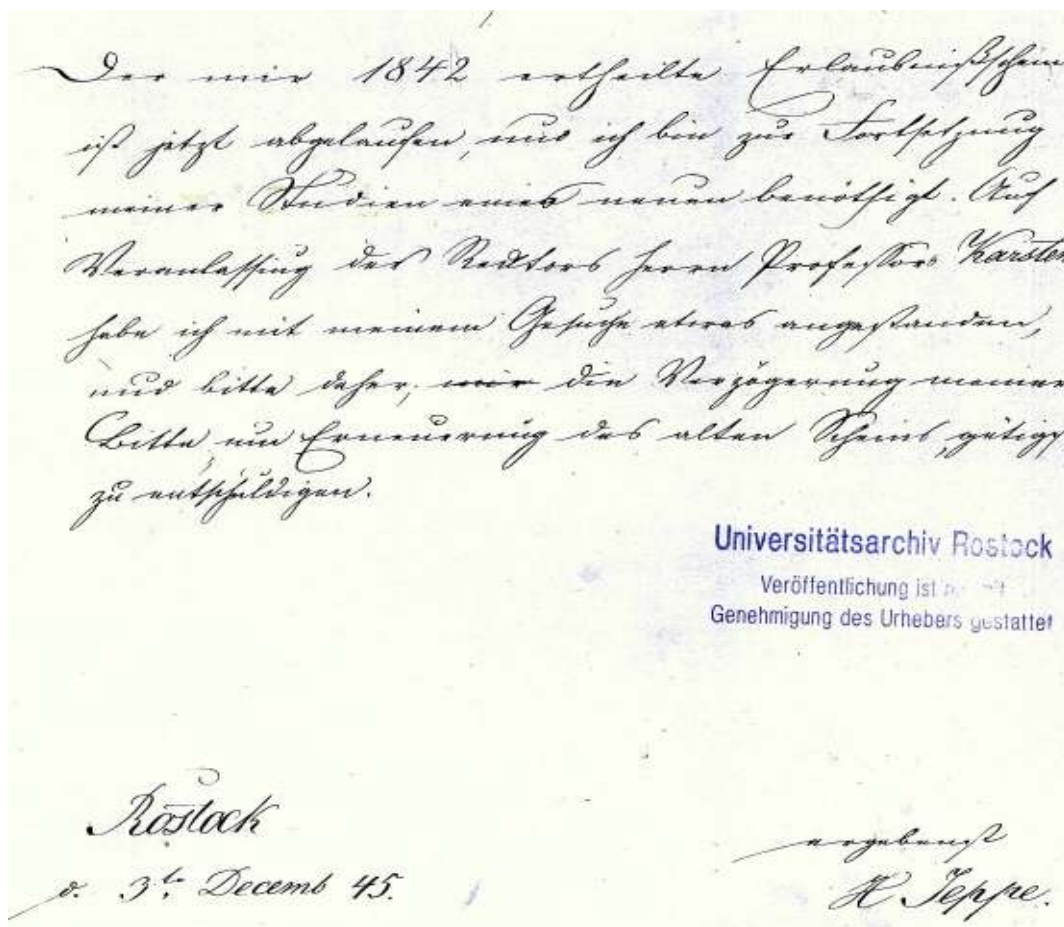 Der mir 1842 ertheilte Erlaubnißschein
ist jetzt abgelaufen, und ich bin zur Fortsetzung
meiner Studien eines neuen benöthigt. Auf
Veranlassung des Rectors Herrn Professors Karsten
habe ich mit meinem Gesuche etwas angestanden,
und bitte daher, mir die Verzögerung meiner
Bitte um Erneuerung des alten Scheins gütigst
zu entschuldigen.
Universitätsarchiv Rostock
Veröffentlichung ist
Genehmigung des Urhebers gestattet
Rostock
d. 3te Decemb 45.
ergebenst
H Jeppe.